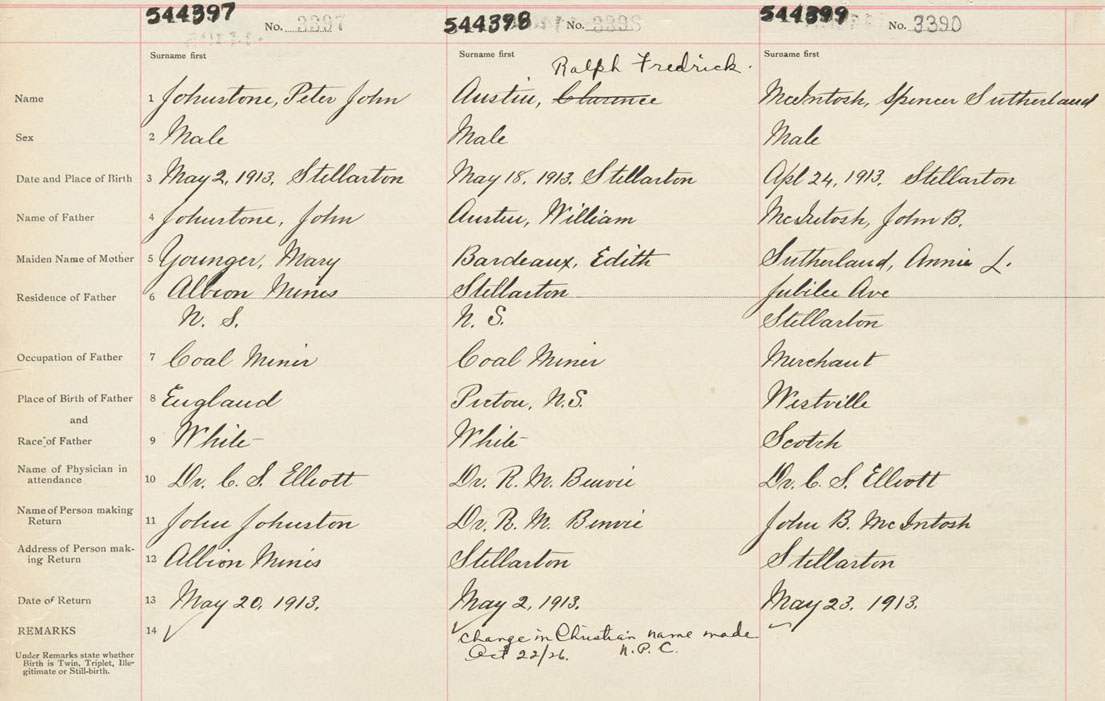 544397 No. 3397 544398 No. 3398 544399 No. 3390
Surname first Surname first Surname first
Ralph Fredrick.
Name 1 Johnstone, Peter John Austin, Clarence McIntosh, Spencer Sutherland
Sex 2 Male Male Male
Date and Place of Birth 3 May 2, 1913, Stellarton May 18, 1913. Stellarton Apl 24, 1913. Stellarton
Name of Father 4 Johnstone, John Austin, William McIntosh, John B.
Maiden Name of Mother 5 Younger, Mary Bardeaux, Edith Sutherland, Annie L.
Residence of Father 6 Albion Mines Stellarton Jubilee Ave
N. S. N. S. Stellarton
Occupation of Father 7 Coal Miner Coal Miner Merchant
Place of Birth of Father 8 England Pictou, N.S. Westville
and
Race of Father 9 White White Scotch
Name of Physician in
attendance 10 Dr. C. S. Elliott Dr. R. M. Benvie Dr. C. S. Elliott
Name of Person making
Return 11 John Johnston Dr. R. M. Benvie John B. McIntosh
Address of Person mak-
ing Return 12 Albion Mines Stellarton Stellarton
Date of Return 13 May 20, 1913. May 2, 1913. May 23. 1913.
REMARKS 14 change in Christian name made
Oct 22/26. N. P. C.
Under Remarks state whether
Birth is Twin, Triplet, Ille-
gitimate or Still-birth.